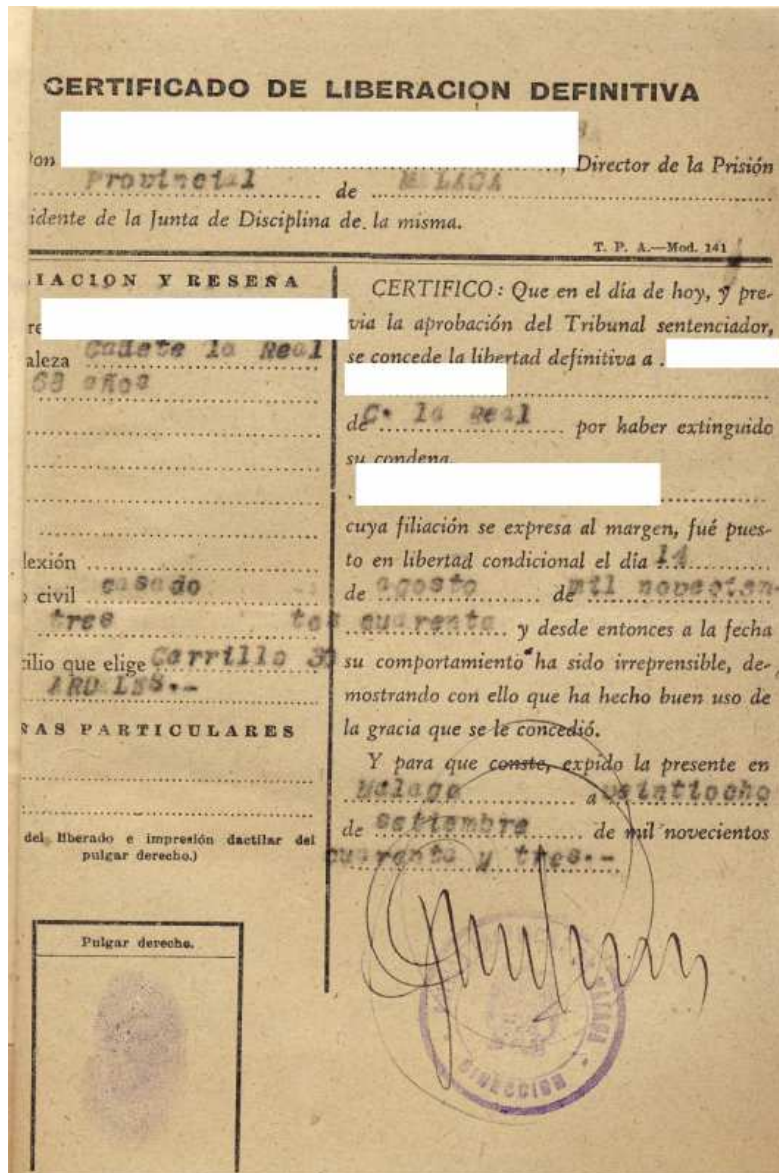 CERTIFICADO DE LIBERACION DEFINITIVA
on , Director de la Prisión
Provincial de MALAGA
idente de la Junta de Disciplina de la misma.
T. P. A.—Mod. 141
IACION Y RESEÑA
re
aleza Cadete la Real
68 años
lexión
civil casado
tres
ilio que elige Carrillo
ARDALES.-
AS PARTICULARES
del liberado e impresión dactilar del
pulgar derecho.)
Pulgar derecho.
CERTIFICO: Que en el día de hoy, y pre-
via la aprobación del Tribunal sentenciador,
se concede la libertad definitiva a
de C. la Real por haber extinguido
su condena.
cuya filiación se expresa al margen, fué pues-
to en libertad condicional el día 14
de agosto de mil novecien-
tos cuarenta y desde entonces a la fecha
su comportamiento ha sido irreprensible, de-
mostrando con ello que ha hecho buen uso de
la gracia que se le concedió.
Y para que conste, expido la presente en
Málaga a veintiocho
de setiembre de mil novecientos
cuarenta y tres.-
DIRECCION